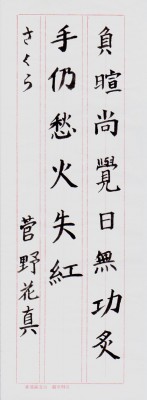 負暄尚覺日無功炙
手仍愁火失紅
さくら
菅野花真